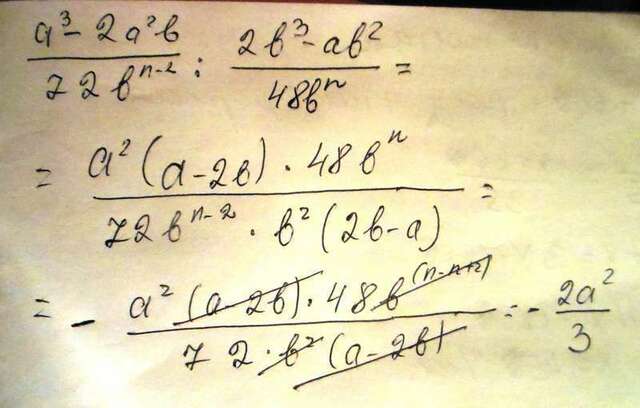 (a³ - 2a²b)/(72b^(n-2)) : (2b³ - ab²)/(48bⁿ) =
= (a²(a-2b) · 48bⁿ)/(72b^(n-2) · b²(2b-a)) =
= - (a²(a-2b) · 48b^(n-n+2))/(72 · b²(a-2b)) = - 2a²/3